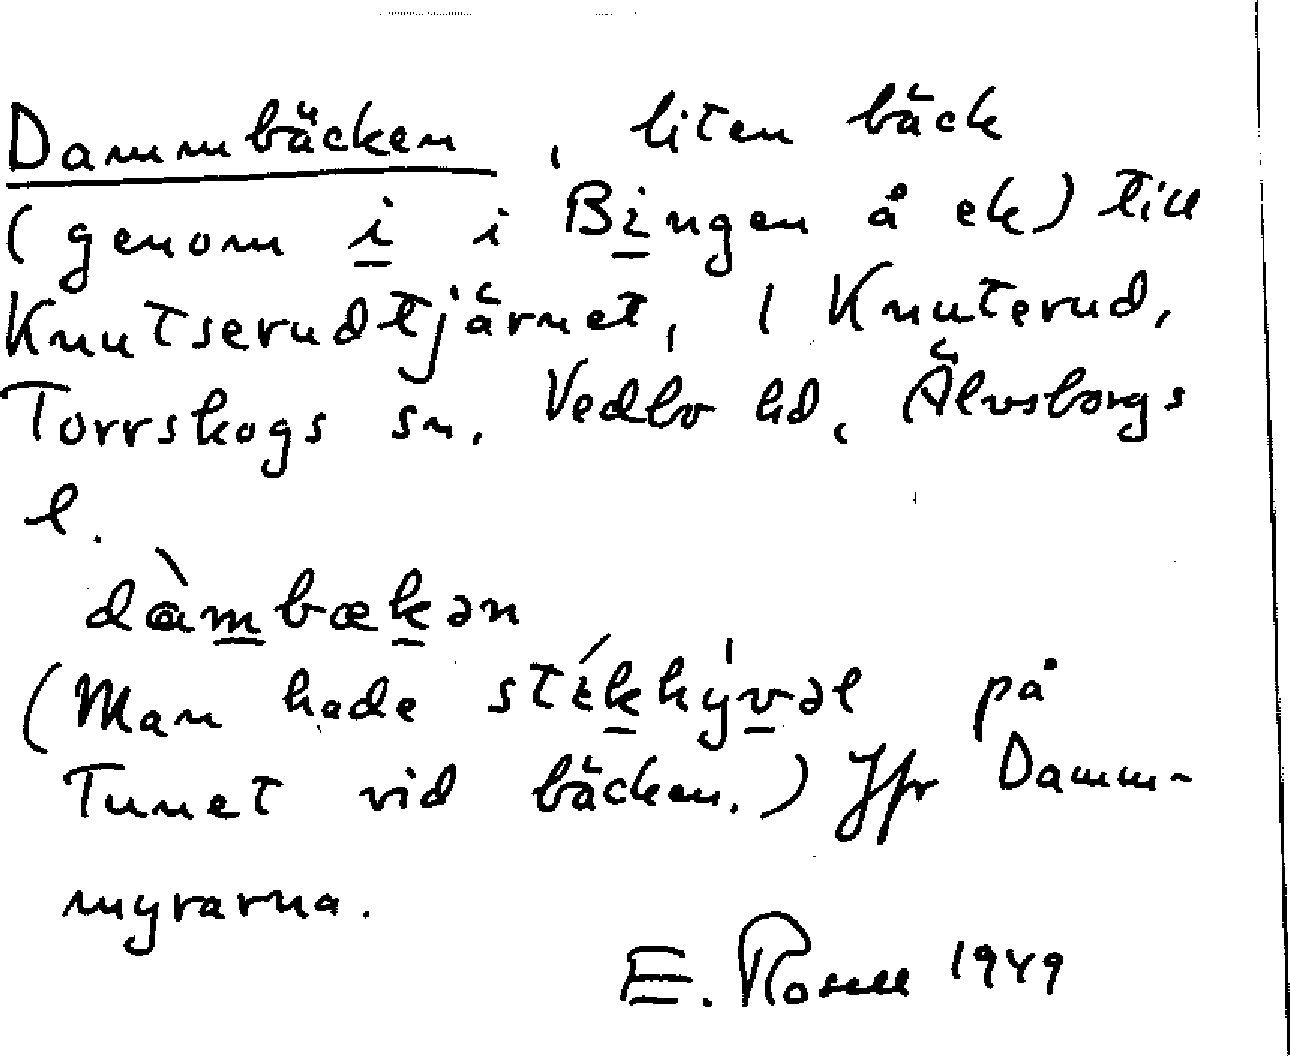 Dammbäcken, liten bäck
(genom i i Bingen å ek) till
Knutserudtjärnet, 1 Knuterud,
Torrskogs sn. Vedbo hd, Älvsborgs
l.
dàmbækən
(Man hade stékhývəl på
Tunet vid bäcken.) Jfr Damm-
myrarna.
E. Rosell 1949